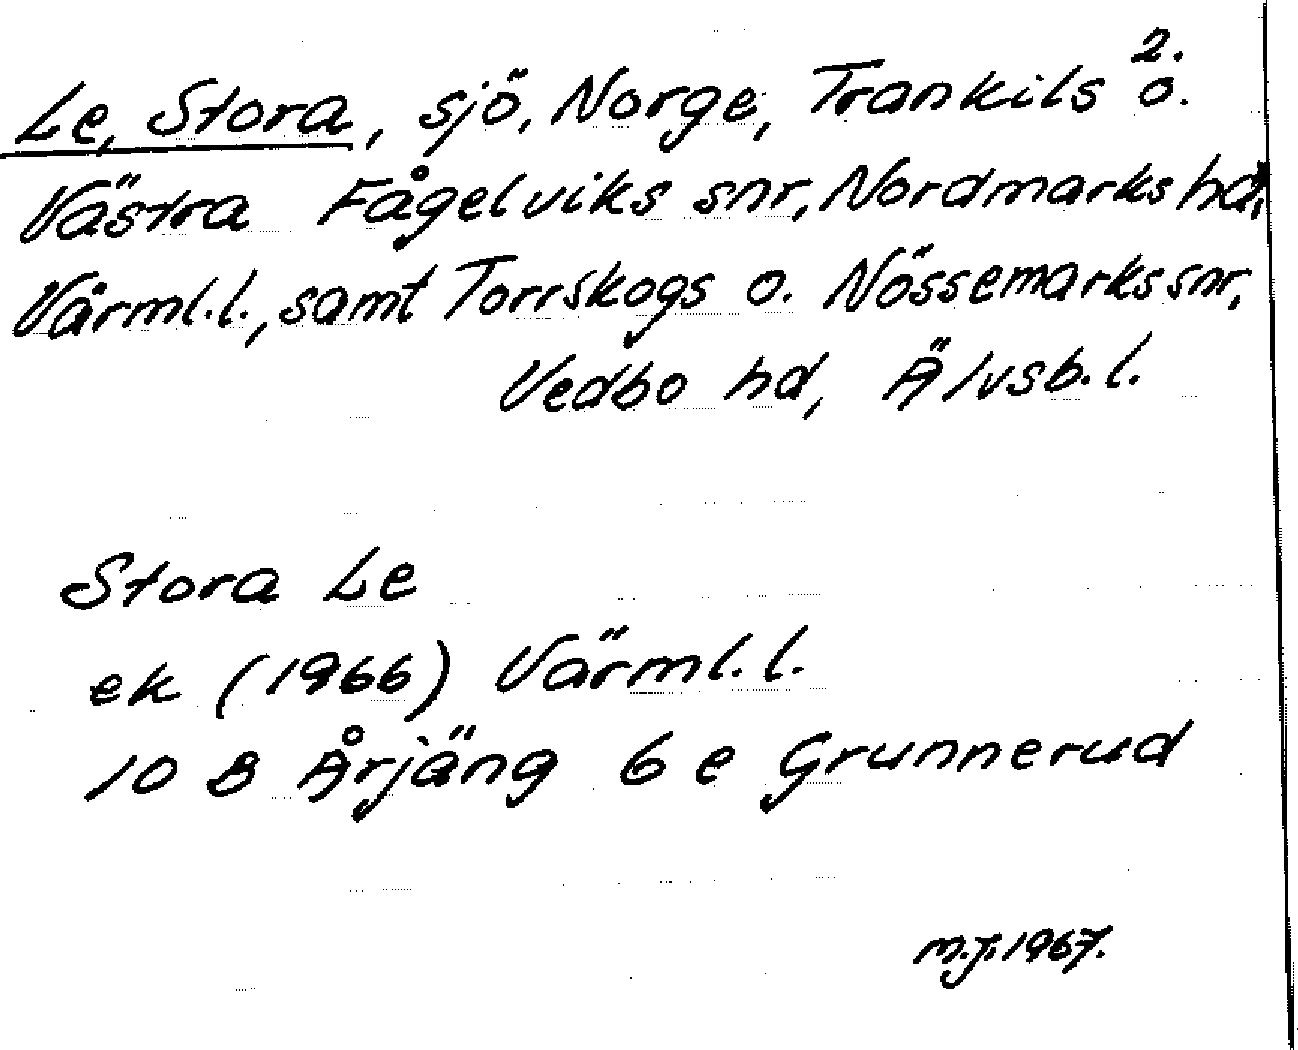 2.
Le, Stora, sjö, Norge, Trankils o.
Västra Fågelviks snr, Nordmarks hd,
Värml.l., samt Torrskogs o. Nössemarks snr,
Vedbo hd, Älvsb.l.
Stora Le
ek (1966) Värml.l.
10 B Årjäng 6 e Grunnerud
m.j. 1967.